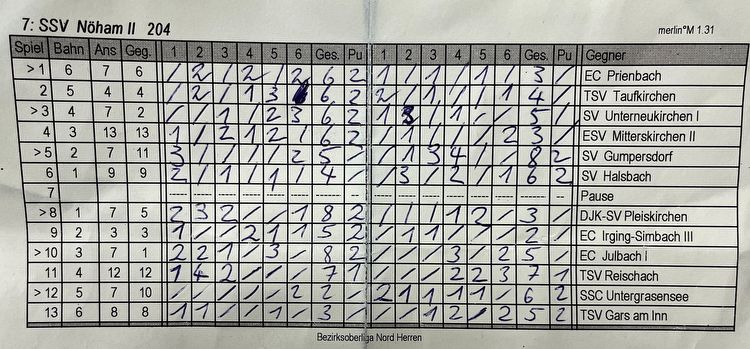 7: SSV Nöham II 204
merlin°M 1.31
Spiel Bahn Ans Geg. 1 2 3 4 5 6 Ges. Pu 1 2 3 4 5 6 Ges. Pu Gegner
>1 6 7 6 / 2 / 2 / 2 6 2 1 / 1 / 1 / 3 / EC Prienbach
2 5 4 4 / 2 / 1 3 6 2 2 / 1 / / 1 4 / TSV Taufkirchen
>3 4 7 2 / / 1 / 2 3 6 2 1 3 / 1 / / 5 / SV Unterneukirchen I
4 3 13 13 1 / 2 1 2 / 6 2 / / / 1 / 2 3 / ESV Mitterskirchen II
>5 2 7 11 3 / / / / 2 5 / / 1 3 4 / / 8 2 SV Gumpersdorf
6 1 9 9 2 / 1 / 1 / 4 / / 3 / 2 / 1 6 2 SV Halsbach
7 ---- ---- ---- ---- ---- ---- ---- ---- ---- ---- ---- ---- ---- ---- ---- ---- Pause
>8 1 7 5 2 3 2 / / 1 8 2 / / / 1 2 / 3 / DJK-SV Pleiskirchen
9 2 3 3 1 / / 2 1 1 5 2 / 1 / / 1 / 2 / EC Irging-Simbach III
>10 3 7 1 2 2 1 / 3 / 8 2 / / / 3 / 2 5 / EC Julbach I
11 4 12 12 1 4 2 / / / 7 1 / / / 2 2 3 7 1 TSV Reischach
>12 5 7 10 / / / / / 2 2 / 2 1 1 1 1 / 6 2 SSC Untergrasensee
13 6 8 8 1 1 / / 1 / 3 / / / 1 2 / 2 5 2 TSV Gars am Inn
Bezirksoberliga Nord Herren